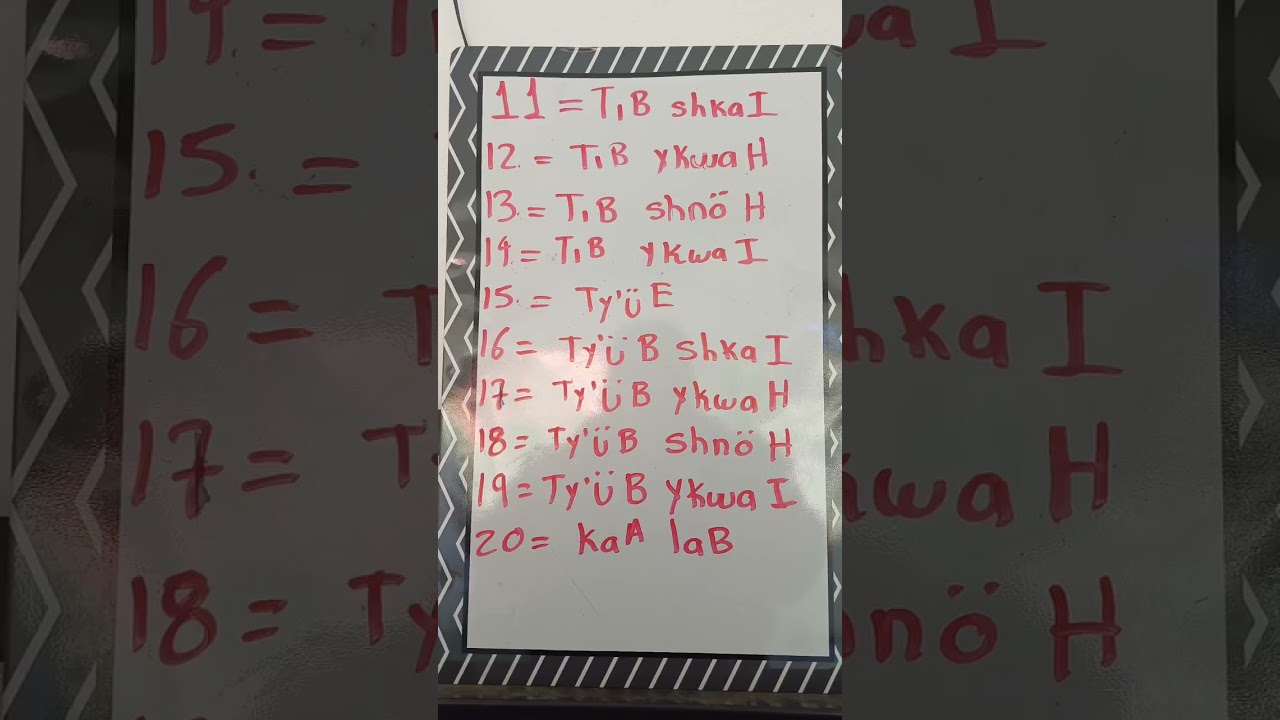 11 = TıB shkaI
12. = TıB ykwaH
13. = TıB shnöH
14. = TıB ykwaI
15. = Ty'üE
16 = Ty'üB shkaI
17 = Ty'üB ykwaH
18 = Ty'üB shnöH
19 = Ty'üB ykwaI
20 = kaA laB